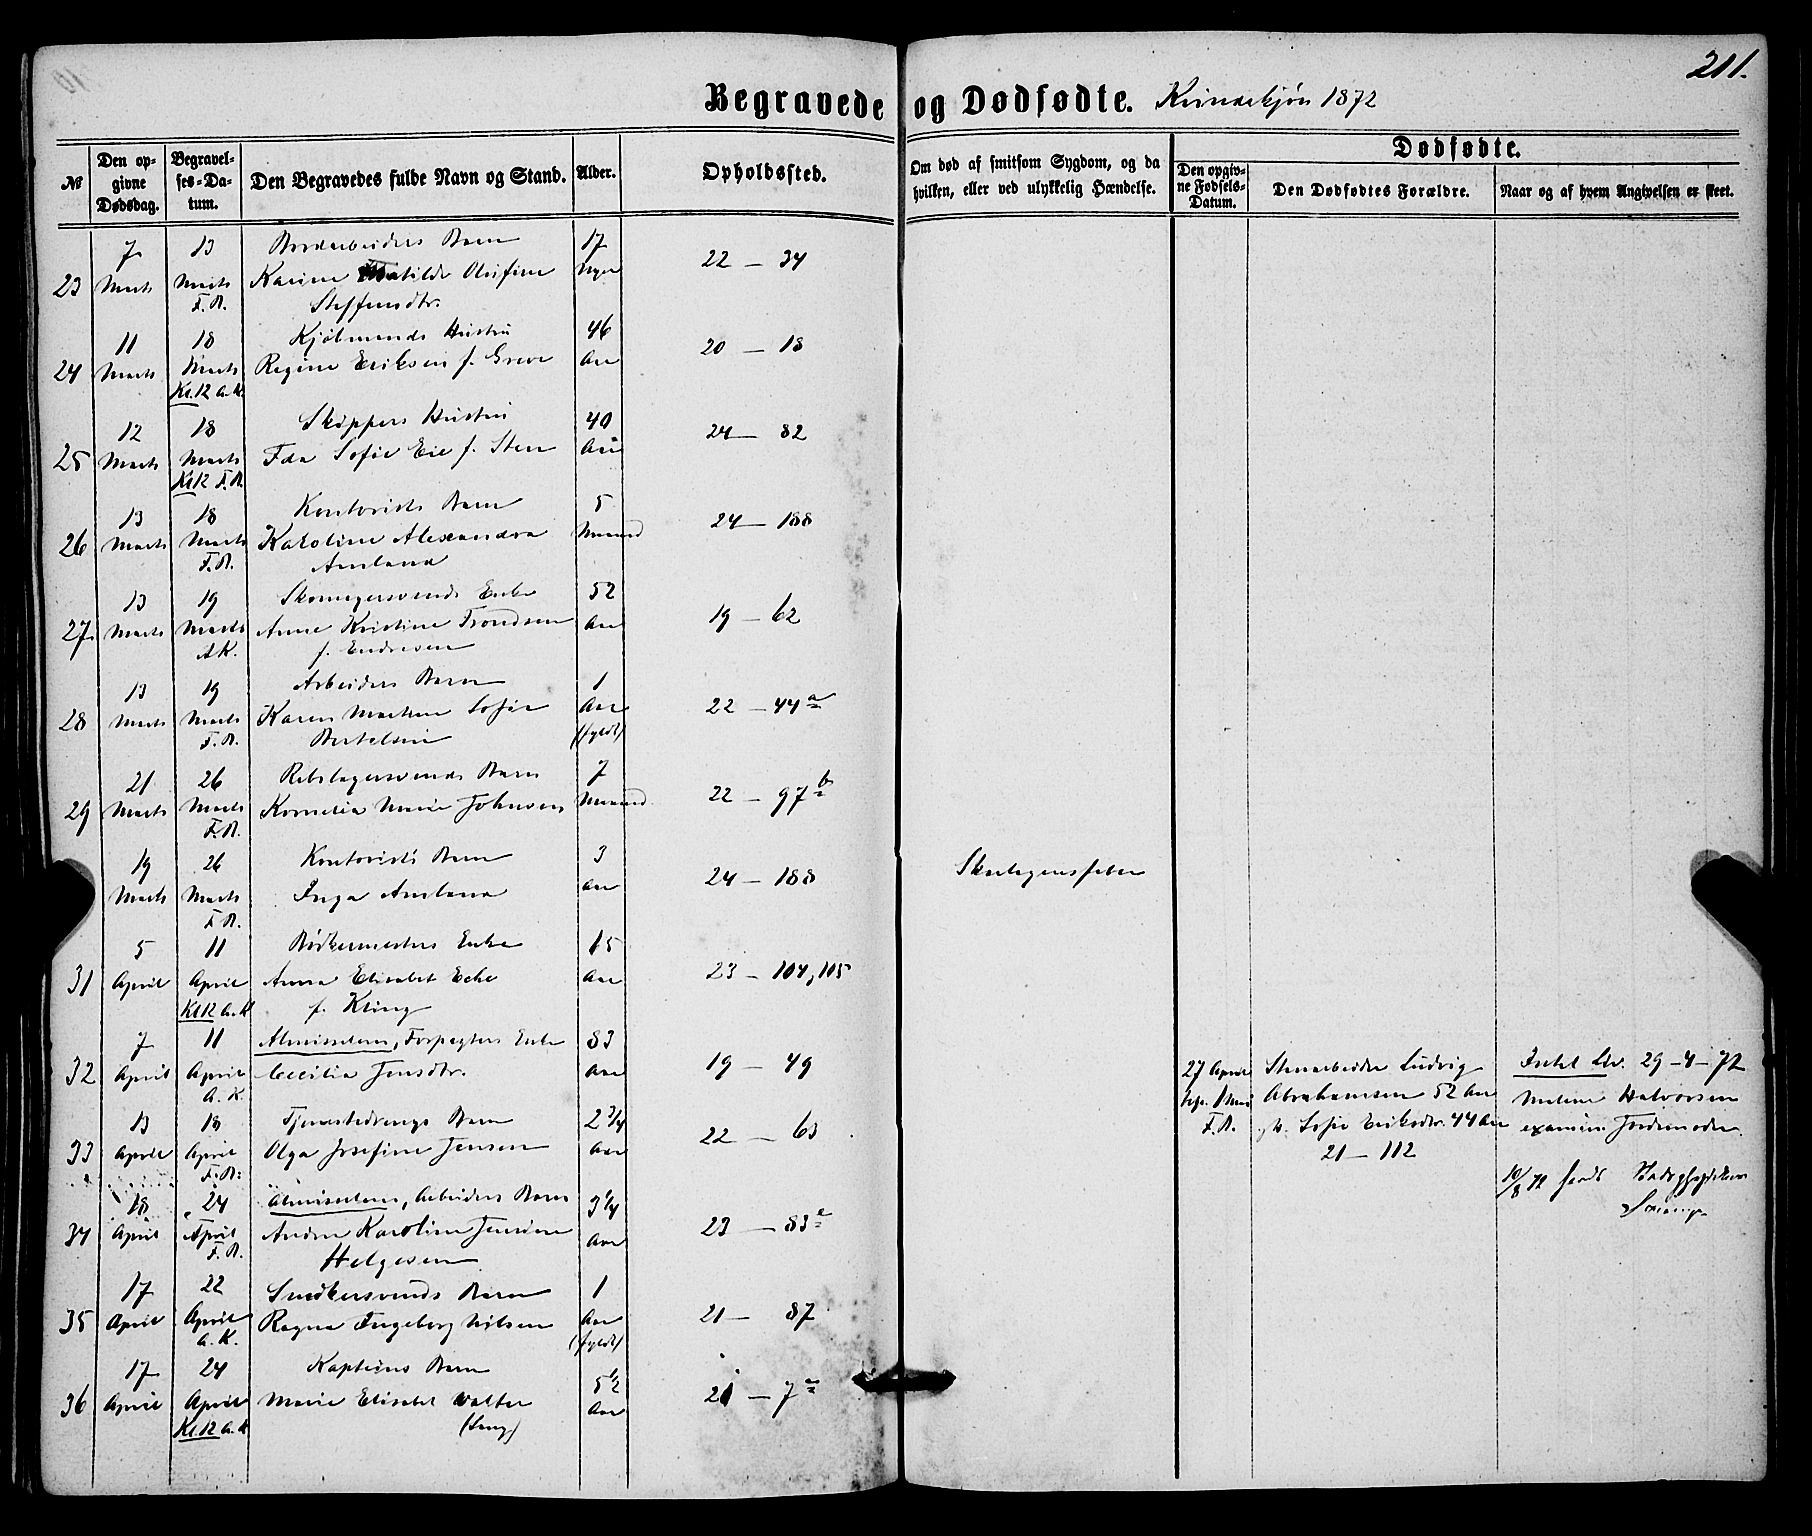 211.
Begravede og Dødfødte. Kvindekjøn 1872
№
Den opgivne Dødsdag.
Begravelses-Datum.
Den Begravedes fulde Navn og Stand.
Alder.
Opholdssted.
Om død af smitsom Sygdom, og da hvilken, eller ved ulykkelig Hændelse.
Dødfødte.
Den opgivne Fødsels-Datum.
Den Dødfødtes Forældre.
Naar og af hvem Angivelsen er skeet.
7 13 Bordarbeiders Barn 17
23 Marts Marts Karine Matilde Olufine Uger 22 — 34
F.R. Steffensdtr.
11 18 Kjøbmands Hustru 46
24 Marts Marts Regine Eriksen f. Greve Aar 20 — 18
Kl.12 A.K.
12 18 Skippers Hustru 40
25 Marts Marts Ida Sofie Eie f. Sten Aar 24 — 82
Kl12 F.R.
13 18 Kontorists Barn 5
26 Marts Marts Karoline Alexandra Maaned 24 — 188
F.R. Amland
13 19 Skomagersvends Enke 52
27. Marts Marts Anne Kristine Trondsen Aar 19 — 62
A.K. f. Endresen
13 19 Arbeiders Barn 1
28 Marts Marts Karen Marthine Sofie Aar 22 — 44a
F.R. Bertelsen (fyldt)
21 26 Rebslagersvends Barn 7
29 Marts Marts Kornelia Marie Johnsen Maaned 22 — 97b
F.R.
19 26 Kontorists Barn 3
Marts Marts Inga Amland Aar 24 — 188 Skarlagensfeber
F.R.
5 11 Bødkermesters Enke 15
31 April April Anna Elisabet Ecke Aar 23 — 104, 105
Kl12 A.K f. Kling
7 11 Almisselem, Forpagters Enke 83
32 April April Cecilia Jensdtr. Aar 19 — 49
A.K.
27 April Stenarbeider Ludvig 29-4-72
F.R. Abrahamsen 52 Aar Malene Halvorsen
Sofie Eriksdtr. 44 Aar examin. Jordemoder
21 — 112
10/8 72
13 18 Tjenestedrengs Barn 2 3/4
33 April April Olga Josefine Jensen Aar 22 — 63
F.R.
18 24 Almisselem, Arbeiders Barn 3 1/4
34 April April Andrea Karoline Aar 23 — 83a
F.R. Helgesen
17 22 Snedkersvends Barn 1
35 April April Ragna Ingeborg Nilsen Aar 21 — 87
A.K. (fyldt)
17 24 Kapteins Barn 5 1/2
36 April April Marie Elisabet Walter Aar 21 — 7a
Kl.12 A.K (Lang)